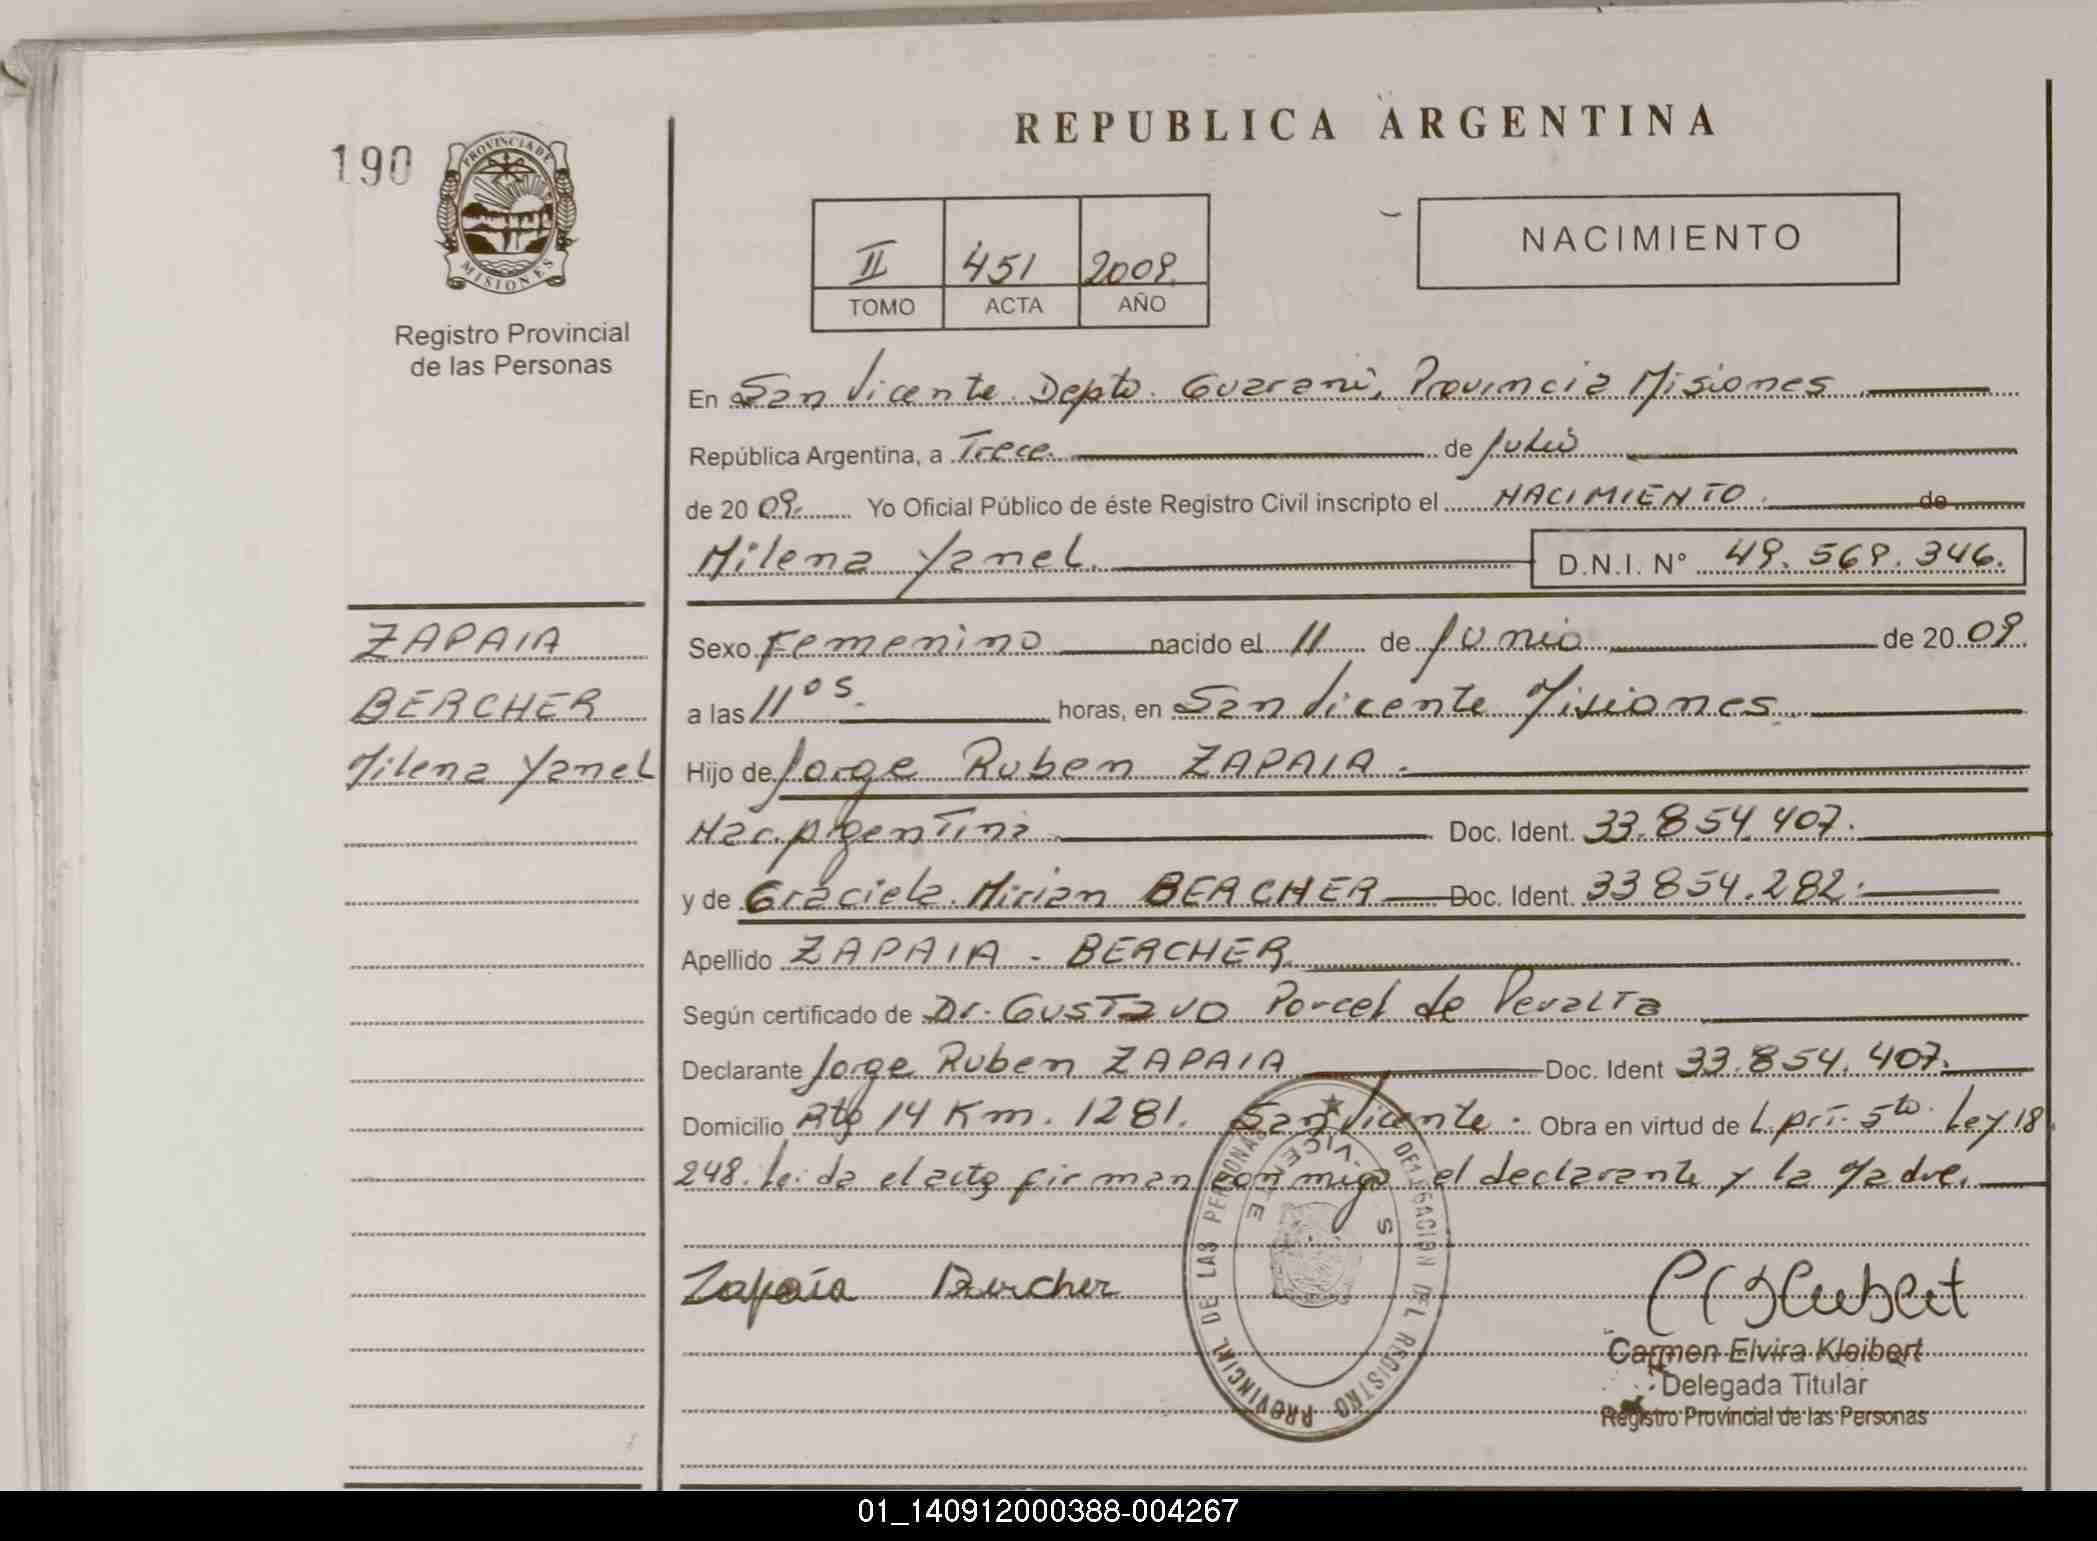 REPUBLICA ARGENTINA
190
PROVINCIA DE
MISIONES
Registro Provincial
de las Personas
II 451 2009.
TOMO ACTA AÑO
NACIMIENTO
En San Vicente Depto. Guaraní, Provincia Misiones
República Argentina, a Trece. de Julio
de 20 09. Yo Oficial Público de éste Registro Civil inscripto el NACIMIENTO. de
Milena Yanel. D.N.I. N° 49.569.346.
ZAPAIA
BERCHER
Milena Yanel
Sexo Femenino nacido el 11 de Junio de 20 09.
a las 11 05. horas, en San Vicente Misiones
Hijo de Jorge Ruben ZAPAIA.
Nac. Argentina Doc. Ident. 33.854.407.
y de Graciela Mirian BERCHER Doc. Ident. 33854.282.
Apellido ZAPAIA - BERCHER
Según certificado de Dr. Gustavo Porcel de Peralta
Declarante Jorge Ruben ZAPAIA Doc. Ident 33.854.407.
Domicilio Rta 14 Km. 1281. San Vicente. Obra en virtud de L. prt. 5to. Ley 18
248. Leida el acta firman conmigo el declarante y la Madre.
Zapaía Bercher
DELEGACION DEL REGISTRO PROVINCIAL DE LAS PERSONAS
S. VICENTE
Carmen Elvira Kleibert
Delegada Titular
Registro Provincial de las Personas
01_140912000388-004267